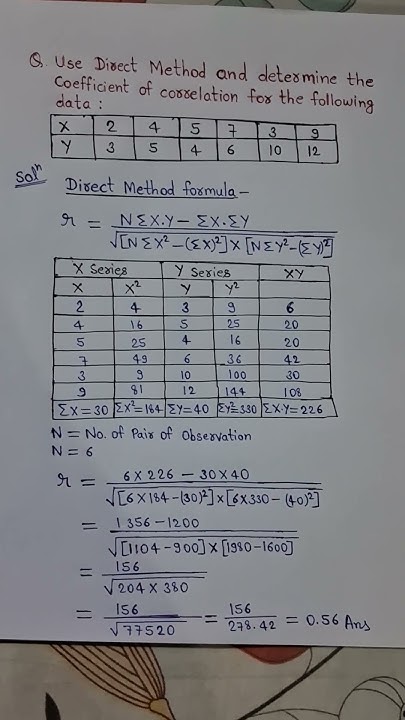 Q. Use Direct Method and determine the
Coefficient of correlation for the following
data :
X 2 4 5 7 3 9
Y 3 5 4 6 10 12
Solⁿ Direct Method formula -
r = NΣX.Y - ΣX.ΣY / √[NΣX² - (ΣX)²] × [NΣY² - (ΣY)²]
X Series Y Series XY
X X² Y Y²
2 4 3 9 6
4 16 5 25 20
5 25 4 16 20
7 49 6 36 42
3 9 10 100 30
9 81 12 144 108
ΣX=30 ΣX²=184 ΣY=40 ΣY²=330 ΣX.Y=226
N = No. of Pair of Observation
N = 6
r = 6×226 - 30×40 / √[6×184-(30)²]×[6×330-(40)²]
= 1356-1200 / √[1104-900]×[1980-1600]
= 156 / √204×380
= 156 / √77520 = 156 / 278.42 = 0.56 Ans